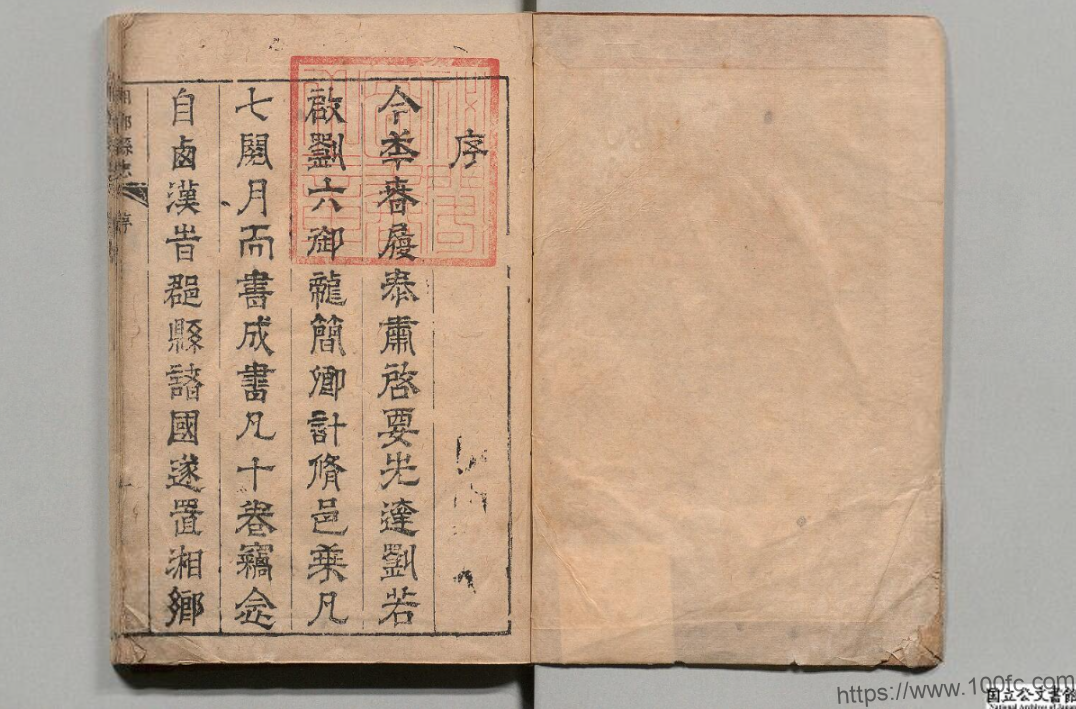 序
今季春履泰肅啓要先達劉若
啟劉六御龍簡卿計脩邑乘凡
七閱月而書成書凡十卷竊念
自鹵漢旹郡縣諸國遂置湘鄉
湘鄉縣志
序
一
https://www.100fc.com
国立公文書館
National Archives of Japan